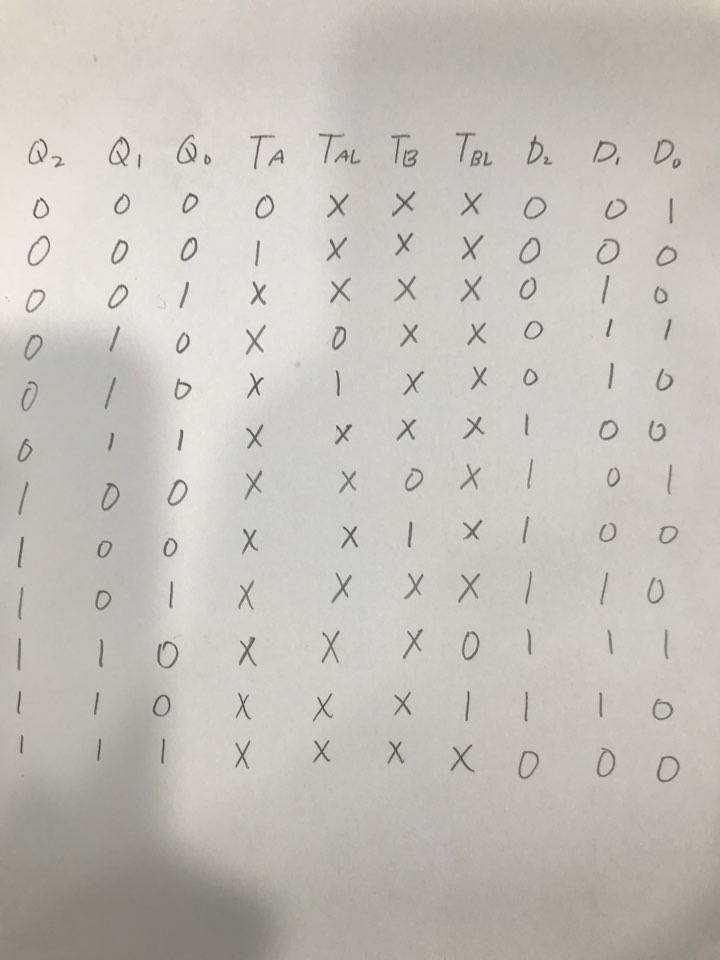 Q₂ Q₁ Q₀ TA TAL TB TBL D₂ D₁ D₀
0 0 0 0 X X X 0 0 1
0 0 0 1 X X X 0 0 0
0 0 1 X X X X 0 1 0
0 1 0 X 0 X X 0 1 1
0 1 0 X 1 X X 0 1 0
0 1 1 X X X X 1 0 0
1 0 0 X X 0 X 1 0 1
1 0 0 X X 1 X 1 0 0
1 0 1 X X X X 1 1 0
1 1 0 X X X 0 1 1 1
1 1 0 X X X 1 1 1 0
1 1 1 X X X X 0 0 0